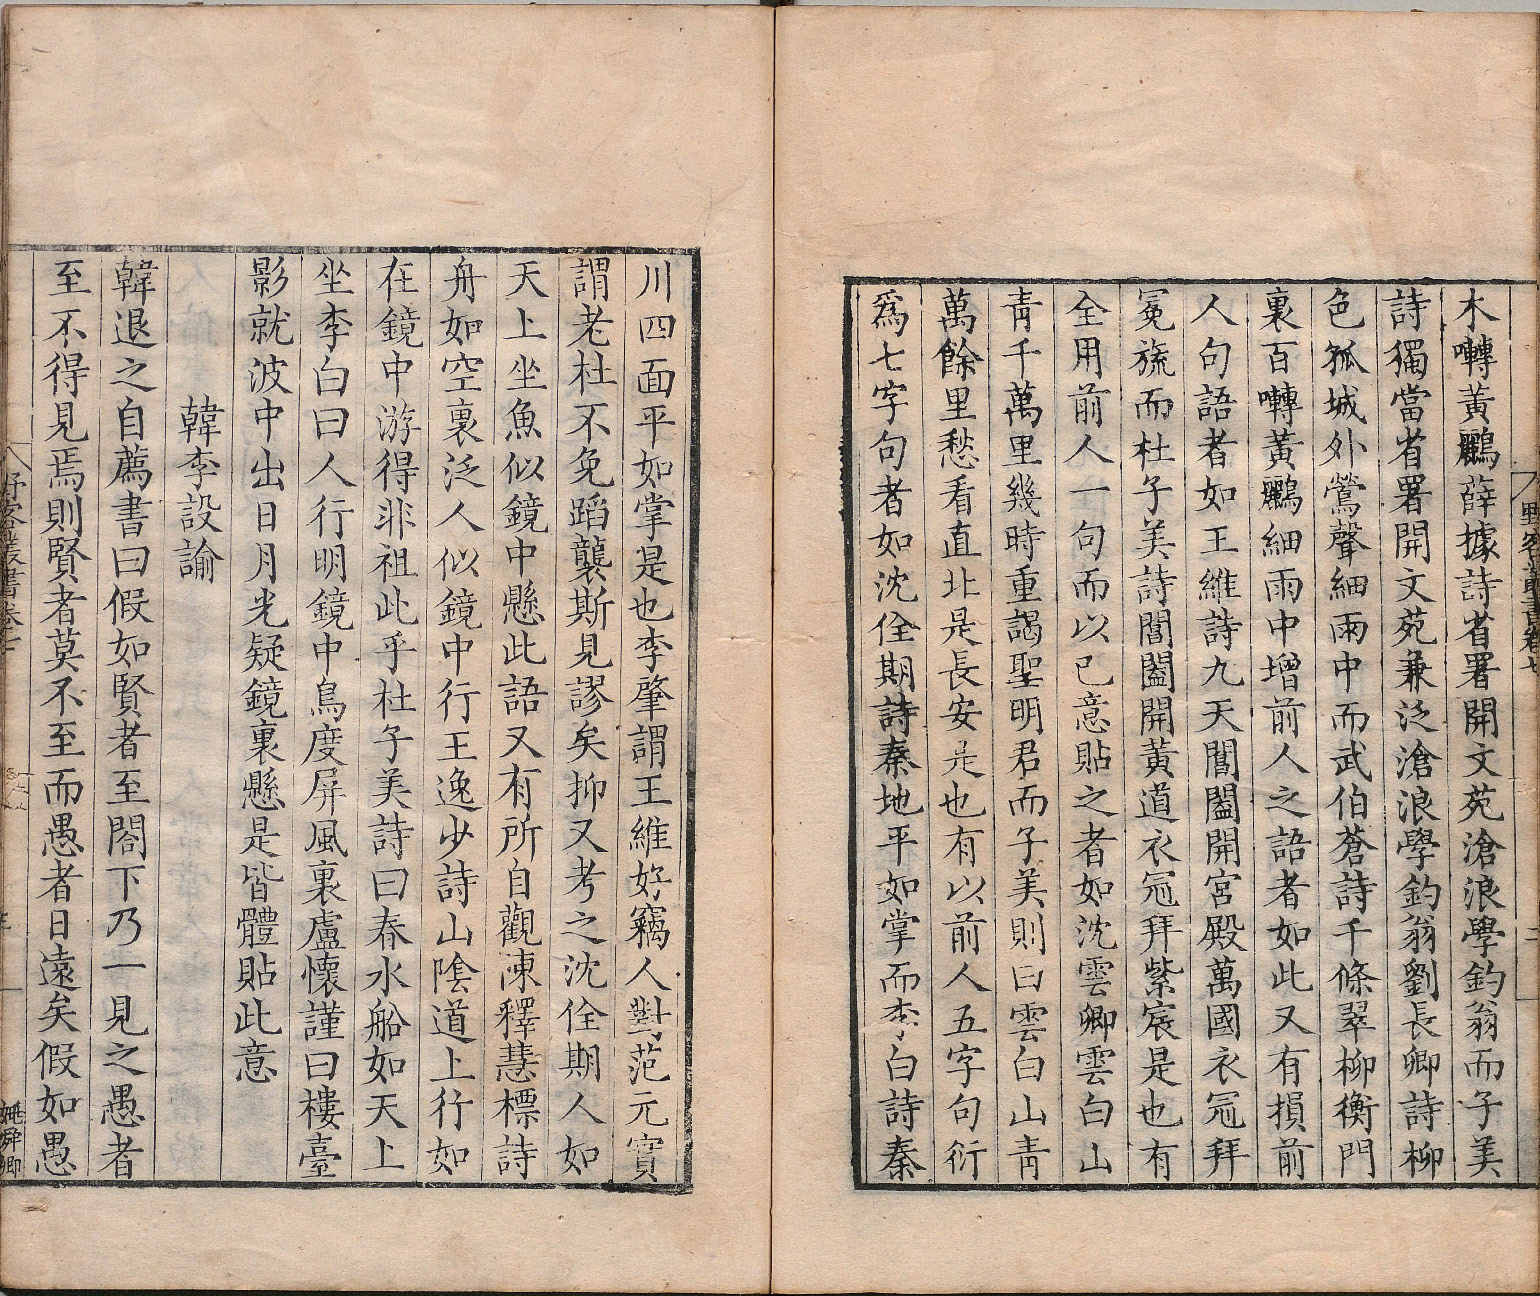 木囀黃鸝薛據詩省署開文苑滄浪學釣翁而子美
詩獨當省署開文苑兼泛滄浪學釣翁劉長卿詩柳
色孤城外鶯聲細雨中而武伯蒼詩千條翠柳衡門
裏百囀黃鸝細雨中增前人之語者如此又有損前
人句語者如王維詩九天閶闔開宮殿萬國衣冠拜
冕旒而杜子美詩閶闔開黃道衣冠拜紫宸是也有
全用前人一句而以己意貼之者如沈雲卿雲白山
靑千萬里幾時重謁聖明君而子美則曰雲白山靑
萬餘里愁看直北是長安是也有以前人五字句衍
爲七字句者如沈佺期詩秦地平如掌而李白詩秦
川四面平如掌是也李肇謂王維好竊人對范元實
謂老杜不免蹈襲斯見謬矣抑又考之沈佺期人如
天上坐魚似鏡中懸此語又有所自觀陳釋慧標詩
舟如空裏泛人似鏡中行王逸少詩山陰道上行如
在鏡中游得非祖此乎杜子美詩曰春水船如天上
坐李白曰人行明鏡中鳥度屏風裏盧懷謹曰樓臺
影就波中出日月光疑鏡裏懸是皆體貼此意
韓李設諭
韓退之自薦書曰假如賢者至閤下乃一見之愚者
至不得見焉則賢者莫不至而愚者日遠矣假如愚
野客叢書卷七
姚舜卿